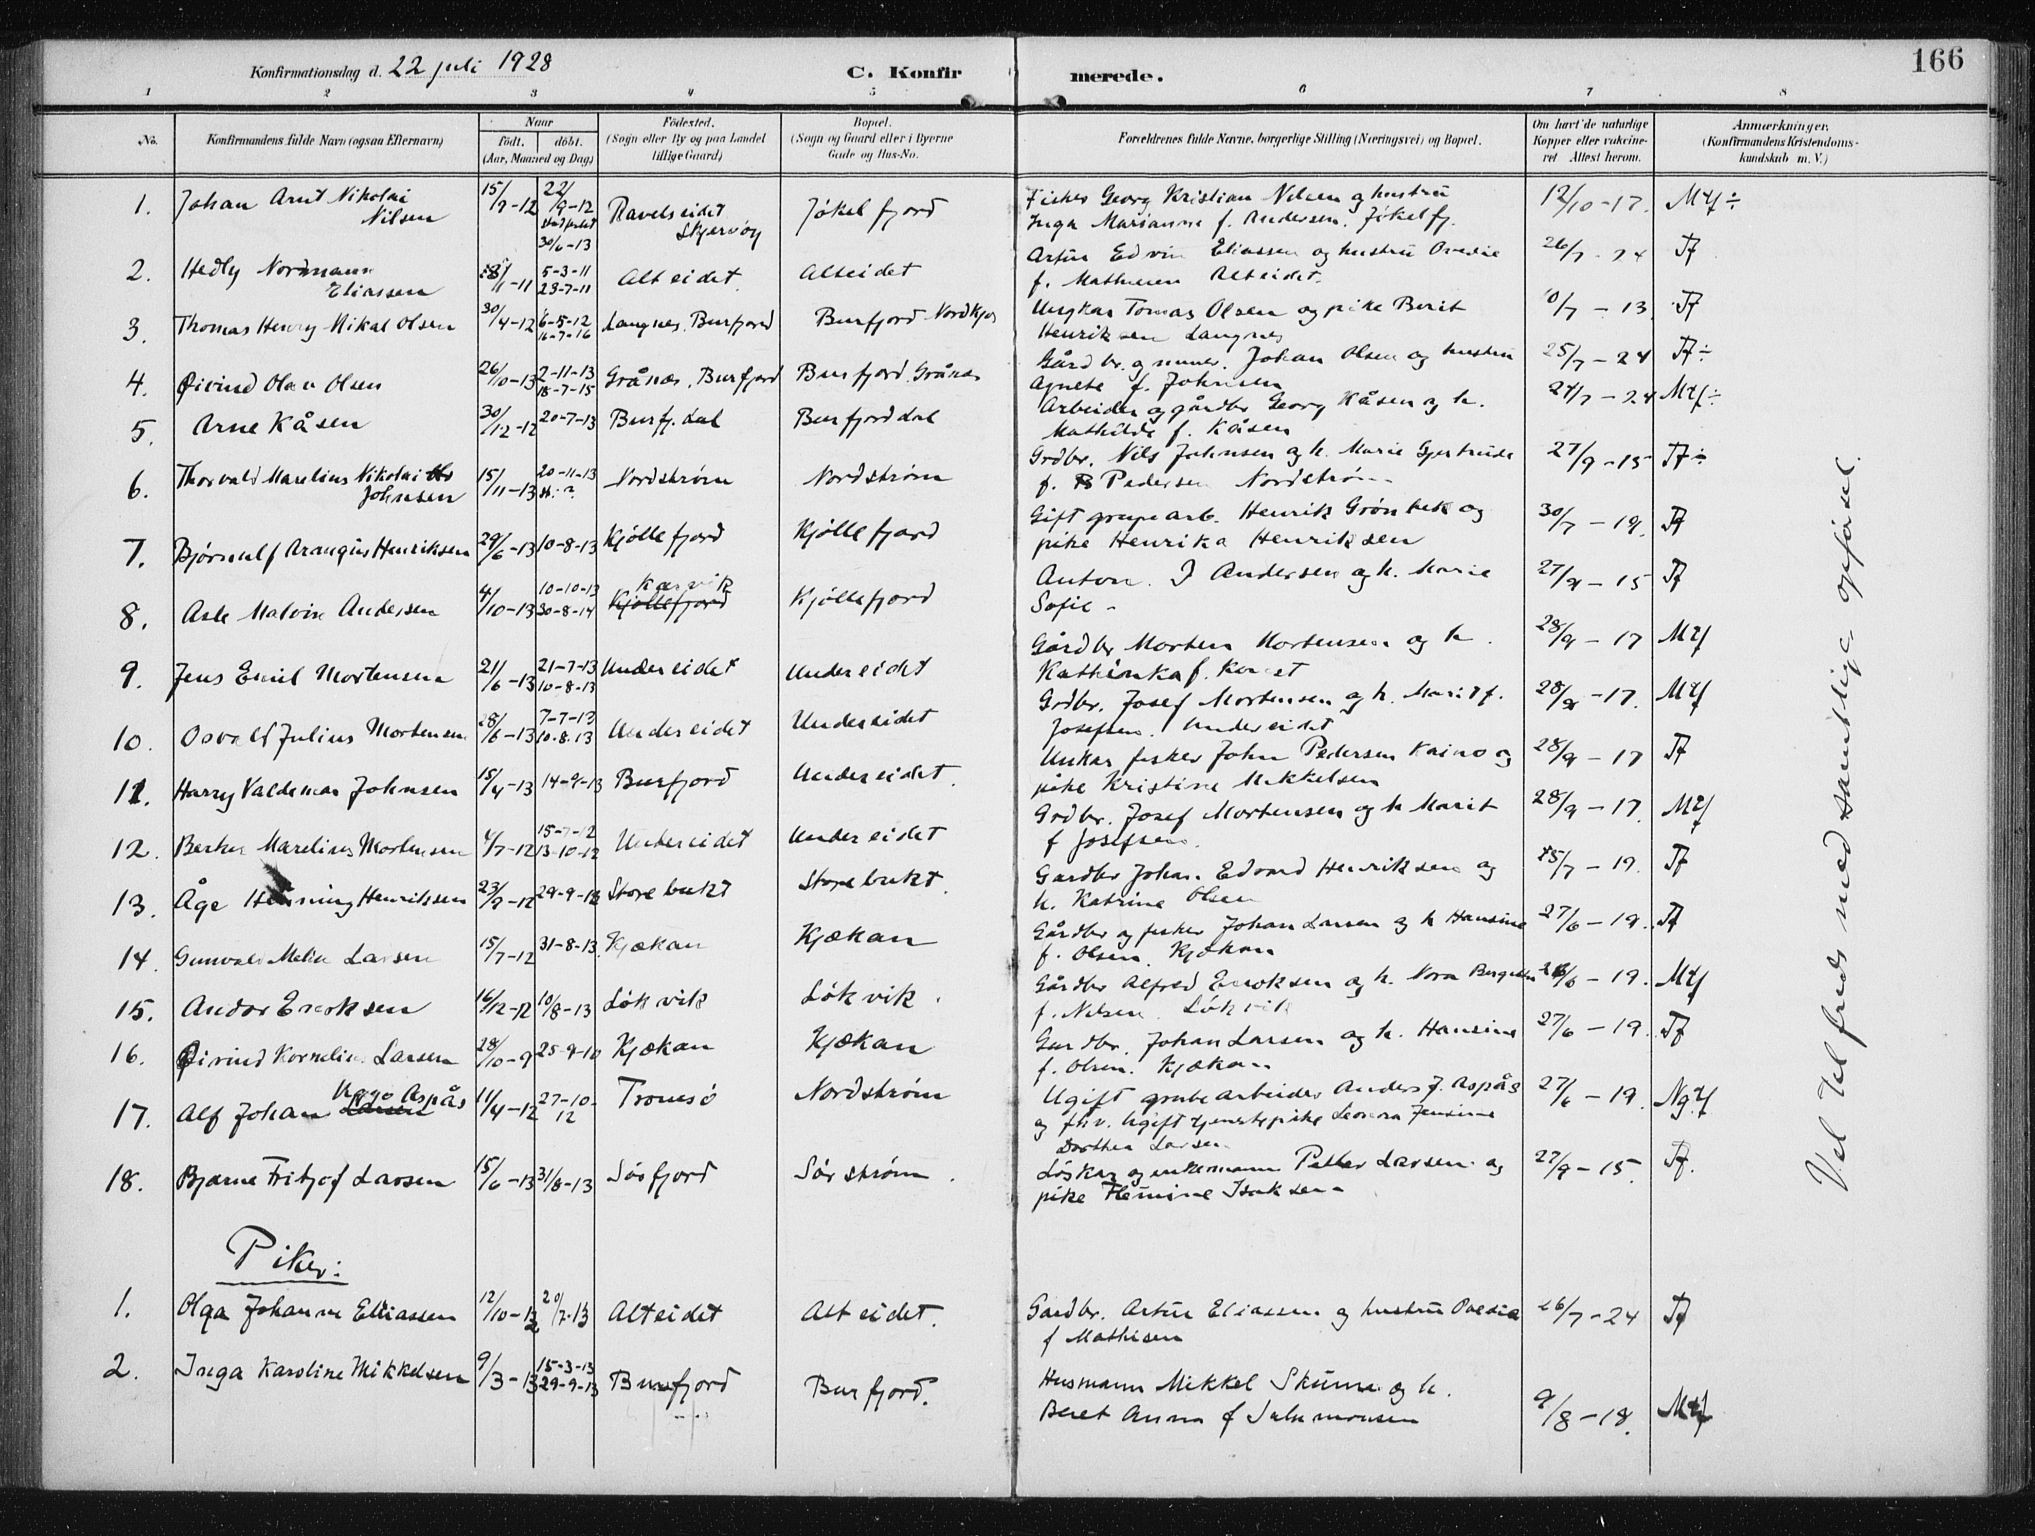 166
Konfirmationsdag d. 22 juli 1928 C. Konfirmerede.
1 2 3 4 5 6 7 8
No. Konfirmandens fulde Navn (ogsaa Efternavn) Naar födt. döbt. (Aar, Maaned og Dag) Födested. (Sogn eller By og paa Landet tillige Gaard) Bopæl. (Sogn og Gaard eller i Byerne Gade og Hus-No. Forældrenes fulde Navne, borgerlige Stilling (Næringsvei) og Bopæl. Om havt de naturlige Kopper eller vaccineret Attest herom. Anmærkninger. (Konfirmandens Kristendomskundskab m. V.)
1. Johan Arnt Nikolai Nilsen 15/9-12 22/9-12 30/6-13 Ravelseidet Skjervøy Jøkelfjord Fisker Georg Kristian Nilsen og hustru
Inga Marianne f. Andersen. Jøkelfj. 12/10-17. Mtf ÷
2. Hedly Normann Eliassen 28/1-11 5-3-11 23-7-11 Alteidet. Alteidet Artur Edvin Eliassen og hustru Ovedie
f. Mathisen Alteidet. 26/7-24 Tf
3. Thomas Henry Mikal Olsen 30/4-12 6-5-12 16-7-16 Langnes, Burfjord Burfjord Ungkar Tomas Olsen og pike Berit
Henriksen Langnes 10/7-13 Tf
4. Øivind Olav Olsen 26/10-13 2-11-13 18-7-15 Grånæs, Burfjord Burfjord, Grånæs Gårdbr. og Johan Olsen og hustru
Agnete f. Johnsen 25/7-24 Tf ÷
5. Arne Kåsen 30/12-12 20-7-13 Burfj.dal Burfjorddal Arbeider og gårdbr Georg Kåsen og h.
Mathilde f. Kåsen 24/7-24 Mtf ÷
6. Thorvald Marelius Nikolai Johnsen 15/11-13 20-11-13 Nordstrøm Nordstrøm Grdbr. Nils Johnsen og h. Marie Gjertrude
f. Pedersen Nordstrøm 27/9-15 Tf ÷
7. Bjørnulf Henriksen 29/6-13 10-8-13 Kjøllefjord Kjøllefjord Gift grupearb. Henrik Grønbek og
pike Henrika Henriksen 30/7-19. Tf
8. Asle Malvin Andersen 4/10-13 10-10-13 30-8-14 Kjøllefjord Kjøllefjord Anton. J Andersen og h. Marie
Sofie - 27/9-15 Tf
9. Jens Emil Mortensen 21/6-13 21-7-13 10-8-13 Undereidet Undereidet Gårdbr Morten Mortensen og h.
Kathinka f. 28/9-17 Mtf
10. Osvald Julius Mortensen 28/6-13 7-7-13 10-8-13 Undereidet Undereidet Grdbr. Josef Mortensen og h. Marit f.
Josefsen. Undereidet 28/9-17. Mtf
11. Harry Valdemar Johnsen 15/4-13 14-9-13 Burfjord Undereidet. Unkar fisker John Pedersen Kaino og
pike Kristine Mikkelsen 28/9-17 Tf
12. Berker Marelius Mortensen 4/7-12 15-7-12 13-10-12 Undereidet Undereidet Grdbr. Josef Mortensen og h Marit
f Josefsen. 28/9-17. Mtf
13. Åge Henning Henriksen 23/9-12 29-9-12 Storebukt Storebukt. Gardbr Johan Edvard Henriksen og
h. Katrine Olsen 15/7-19. Tf
14. Gunvald Larsen 15/7-12 31-8-13 Kjækan Kjækan Gårdbr og fisker Johan Larsen og h Hansine
f. Olsen. Kjækan 27/6-19. Tf
15. Andor Enoksen 16/12-12 10/8-13 Løkvik Løkvik. Gårdbr Alfred Enoksen og h. Nora
f. Nilsen. Løkvik 26/6-19. Mtf
16. Øivind Larsen 28/10-9 25-9-10 Kjækan Kjækan Gardbr. Johan Larsen og h. Hansine
f. Olsen. Kjækan 27/6-19. Tf
17. Alf Johan Larsen Aspås 11/4-12 27-10-12 Tromsö Nordstrøm Ugift grubearbeider Anders J. Aspås
og fhv. ugift tjenestepike Leonora Jensine
Dorthea Larsen 27/6-19. Ng.tf
18. Bjarne Fritjof Larsen 15/6-13 31/8-13 Sörfjord Sörstrøm. og enkemann Petter Larsen og
pike Isaksen 27/9-15. Tf.
Piker:
1. Olga Johanne Eliassen 12/10-12 20/7-13 Alteidet Alteidet. Gardbr. Artur Eliassen og hustru Ovedia
f Mathisen 26/7-24 Tf
2. Inga Karoline Mikkelsen 9/3-13 15-3-13 29-9-13 Burfjord Burfjord. Husmann Mikkel og h.
Beret Anna f Salamonsen 9/8-18. Mtf
Vel tilfreds med samtlige opførsel.